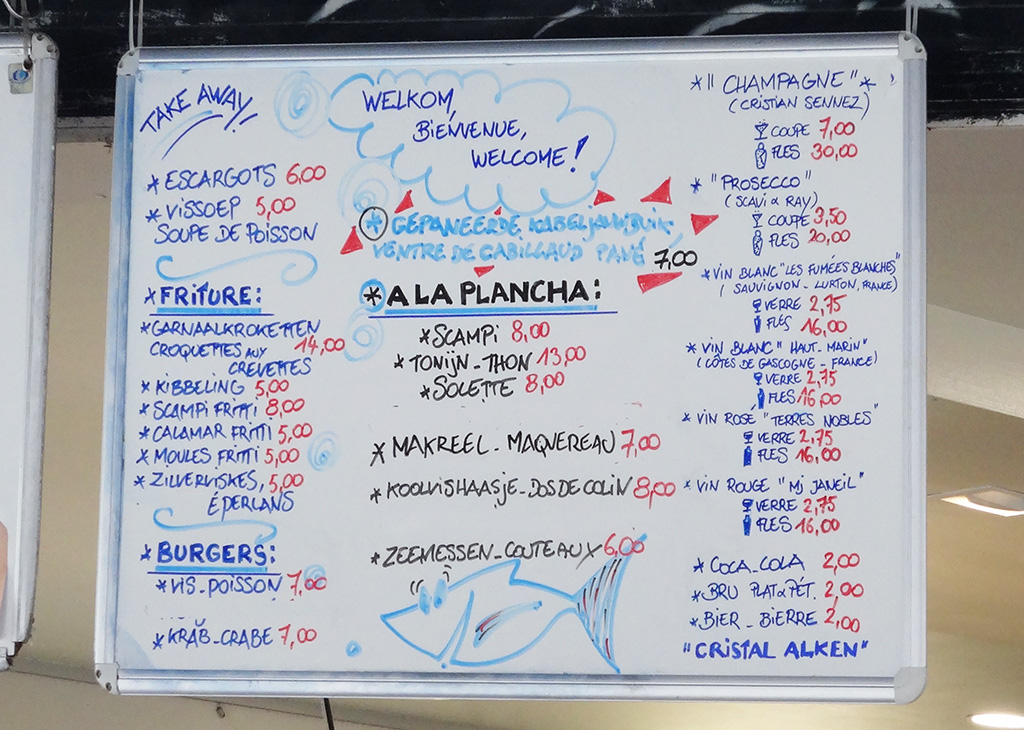 TAKE AWAY!
* ESCARGOTS 6,00
* VISSOEP 5,00
SOUPE DE POISSON
* FRITURE:
* GARNAALKROKETTEN
CROQUETTES AUX 14,00
CREVETTES
* KIBBELING 5,00
* SCAMPI FRITTI 8,00
* CALAMAR FRITTI 5,00
* MOULES FRITTI 5,00
* ZILVERVISKES, 5,00
ÉPERLANS
* BURGERS:
* VIS-POISSON 7,00
* KRAB-CRABE 7,00
WELKOM,
BIENVENUE,
WELCOME!
* GEPANEERDE KABELJAUWBUIK
VENTRE DE CABILLAUD PANÉ 7,00
* A LA PLANCHA:
* SCAMPI 8,00
* TONIJN-THON 13,00
* SOLETTE 8,00
* MAKREEL-MAQUEREAU 7,00
* KOOLVISHAASJE-DOS DE COLIN 8,00
* ZEEMESSEN-COUTEAUX 6,00
* "CHAMPAGNE" *
(CRISTIAN SENNEZ)
COUPE 7,00
FLES 30,00
* "PROSECCO"
(SCAVI & RAY)
COUPE 3,50
FLES 20,00
* VIN BLANC "LES FUMÉES BLANCHES"
(SAUVIGNON-LURTON, FRANCE)
VERRE 2,75
FLES 16,00
* VIN BLANC "HAUT-MARIN"
(CÔTES DE GASCOGNE-FRANCE)
VERRE 2,75
FLES 16,00
* VIN ROSÉ "TERRES NOBLES"
VERRE 2,75
FLES 16,00
* VIN ROUGE "MJ JANEIL"
VERRE 2,75
FLES 16,00
* COCA-COLA 2,00
* BRU PLAT & PÉT. 2,00
* BIER-BIERRE 2,00
"CRISTAL ALKEN"